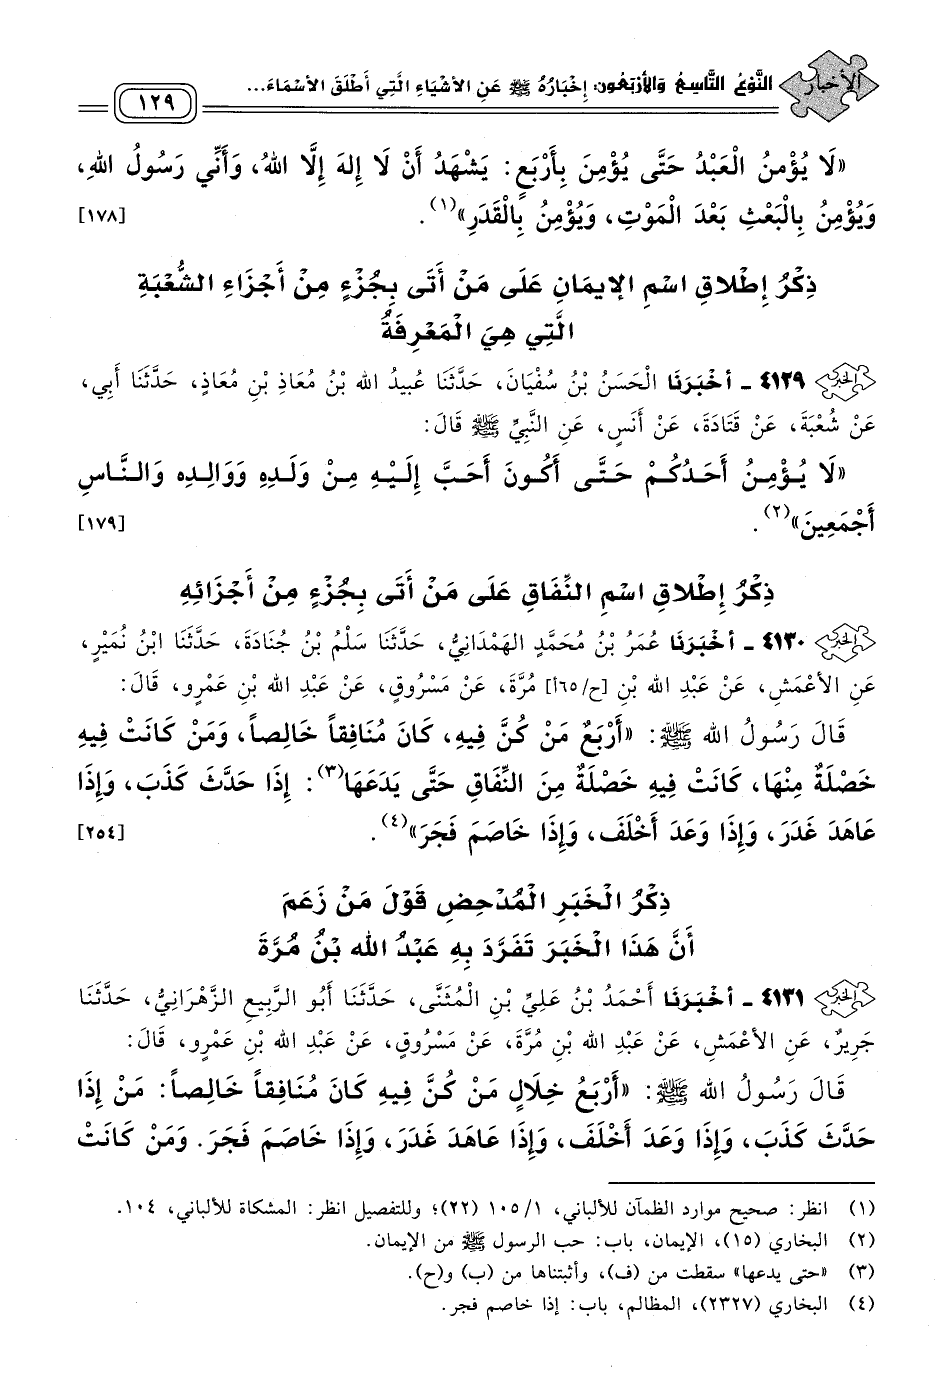 الأخبار
النَّوْعُ التَّاسِعُ وَالأَرْبَعُونَ: إِخْبَارُهُ ﷺ عَنِ الأَشْيَاءِ الَّتِي أَطْلَقَ الأَسْمَاءَ...
١٢٩
«لَا يُؤْمِنُ الْعَبْدُ حَتَّى يُؤْمِنَ بِأَرْبَعٍ: يَشْهَدُ أَنْ لَا إِلهَ إِلَّا اللهُ، وَأَنِّي رَسُولُ اللهِ،
وَيُؤْمِنُ بِالْبَعْثِ بَعْدَ الْمَوْتِ، وَيُؤْمِنُ بِالْقَدَرِ»(١). [١٧٨]
ذِكْرُ إِطْلَاقِ اسْمِ الإِيمَانِ عَلَى مَنْ أَتَى بِجُزْءٍ مِنْ أَجْزَاءِ الشُّعْبَةِ
الَّتِي هِيَ الْمَعْرِفَةُ
الخبر ٤١٢٩ ـ أَخْبَرَنَا الْحَسَنُ بْنُ سُفْيَانَ، حَدَّثَنَا عُبيدُ الله بْنُ مُعَاذِ بْنِ مُعَاذٍ، حَدَّثَنَا أَبِي،
عَنْ شُعْبَةَ، عَنْ قَتَادَةَ، عَنْ أَنَسٍ، عَنِ النَّبِيِّ ﷺ قَالَ:
«لَا يُؤْمِنُ أَحَدُكُمْ حَتَّى أَكُونَ أَحَبَّ إِلَيْهِ مِنْ وَلَدِهِ وَوَالِدِهِ وَالنَّاسِ
أَجْمَعِينَ»(٢). [١٧٩]
ذِكْرُ إِطْلَاقِ اسْمِ النِّفَاقِ عَلَى مَنْ أَتَى بِجُزْءٍ مِنْ أَجْزَائِهِ
الخبر ٤١٣٠ ـ أَخْبَرَنَا عُمَرُ بْنُ مُحَمَّدٍ الهَمْدَانِيُّ، حَدَّثَنَا سَلْمُ بْنُ جُنَادَةَ، حَدَّثَنَا ابْنُ نُمَيْرٍ،
عَنِ الأَعْمَشِ، عَنْ عَبْدِ الله بْنِ [ح/٦٥أ] مُرَّةَ، عَنْ مَسْرُوقٍ، عَنْ عَبْدِ الله بْنِ عَمْرٍو، قَالَ:
قَالَ رَسُولُ الله ﷺ: «أَرْبَعٌ مَنْ كُنَّ فِيهِ، كَانَ مُنَافِقاً خَالِصاً، وَمَنْ كَانَتْ فِيهِ
خَصْلَةٌ مِنْهَا، كَانَتْ فِيهِ خَصْلَةٌ مِنَ النِّفَاقِ حَتَّى يَدَعَهَا(٣): إِذَا حَدَّثَ كَذَبَ، وَإِذَا
عَاهَدَ غَدَرَ، وَإِذَا وَعَدَ أَخْلَفَ، وَإِذَا خَاصَمَ فَجَرَ»(٤). [٢٥٤]
ذِكْرُ الْخَبَرِ الْمُدْحِضِ قَوْلَ مَنْ زَعَمَ
أَنَّ هَذَا الْخَبَرَ تَفَرَّدَ بِهِ عَبْدُ الله بْنُ مُرَّةَ
الخبر ٤١٣١ ـ أَخْبَرَنَا أَحْمَدُ بْنُ عَلِيِّ بْنِ الْمُثَنَّى، حَدَّثَنَا أَبُو الرَّبِيعِ الزَّهْرَانِيُّ، حَدَّثَنَا
جَرِيرٌ، عَنِ الأَعْمَشِ، عَنْ عَبْدِ الله بْنِ مُرَّةَ، عَنْ مَسْرُوقٍ، عَنْ عَبْدِ الله بْنِ عَمْرٍو، قَالَ:
قَالَ رَسُولُ الله ﷺ: «أَرْبَعُ خِلَالٍ مَنْ كُنَّ فِيهِ كَانَ مُنَافِقاً خَالِصاً: مَنْ إِذَا
حَدَّثَ كَذَبَ، وَإِذَا وَعَدَ أَخْلَفَ، وَإِذَا عَاهَدَ غَدَرَ، وَإِذَا خَاصَمَ فَجَرَ. وَمَنْ كَانَتْ
(١) انظر: صحيح موارد الظمآن للألباني، ١٠٥/١ (٢٢)؛ وللتفصيل انظر: المشكاة للألباني، ١٠٤.
(٢) البخاري (١٥)، الإيمان، باب: حب الرسول ﷺ من الإيمان.
(٣) «حتى يدعها» سقطت من (ف)، وأثبتناها من (ب) و(ح).
(٤) البخاري (٢٣٢٧)، المظالم، باب: إذا خاصم فجر.